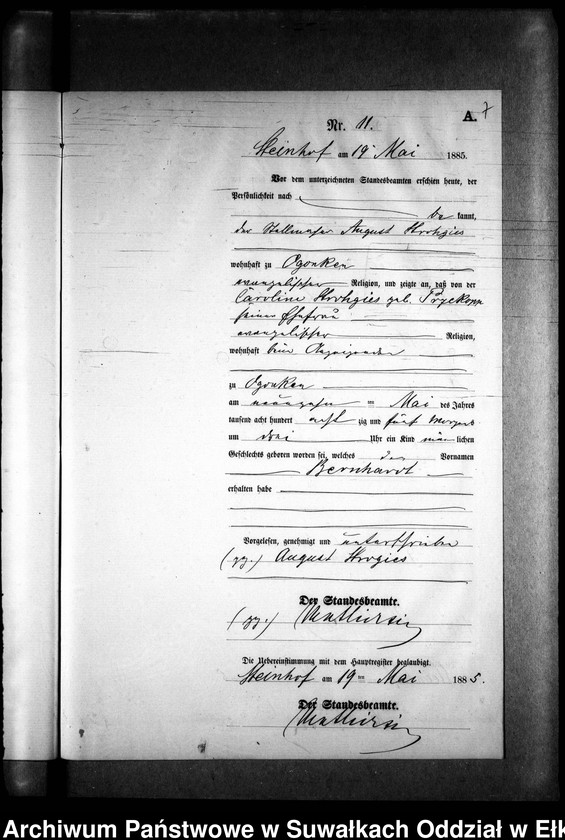 A. 7
Nr. 11.
Steinhof am 19 Mai 1885.
Vor dem unterzeichneten Standesbeamten erschien heute, der
Persönlichkeit nach
be kannt,
der August
wohnhaft zu Ogonken
evangelischer Religion, und zeigte an, daß von der
Caroline geb.
seiner Ehefrau
evangelischer Religion,
wohnhaft beim Anzeigenden
zu Ogonken
am neunzehn ten Mai des Jahres
tausend acht hundert acht zig und fünf Morgens
um drei Uhr ein Kind männ lichen
Geschlechts geboren worden sei, welches den Vornamen
Bernhardt
erhalten habe
Vorgelesen, genehmigt und unterschrieben
(gez.) August
Der Standesbeamte.
(gez.)
Die Uebereinstimmung mit dem Hauptregister beglaubigt.
Steinhof am 19 ten Mai 1885.
Der Standesbeamte.
Archiwum Państwowe w Suwałkach Oddział w Ełk